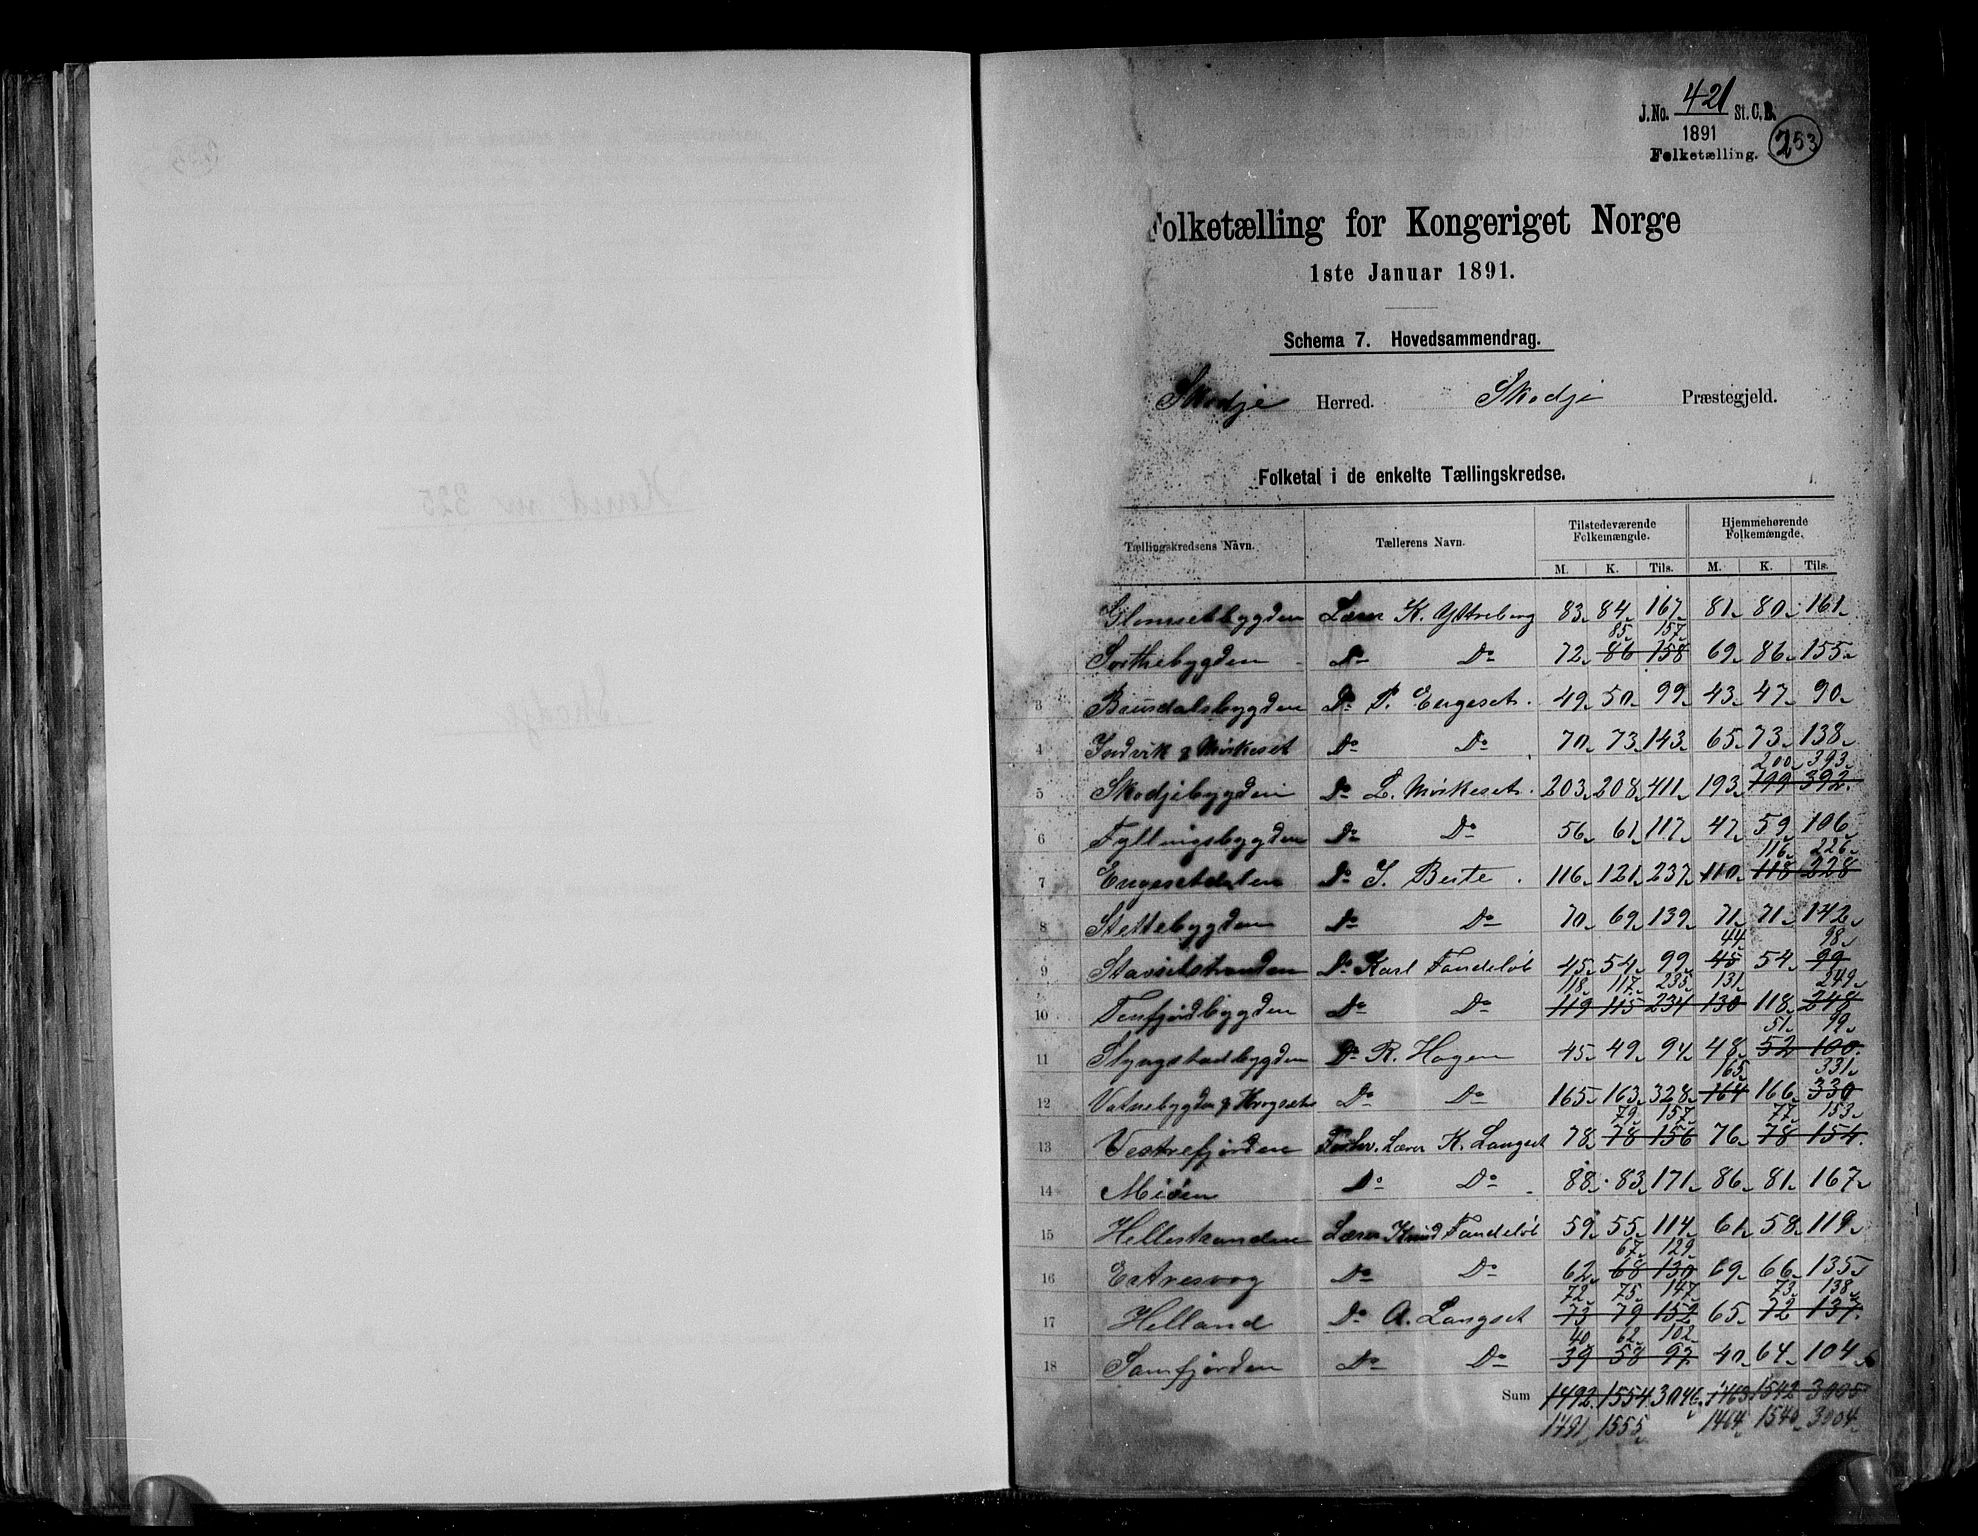 J.No. 421 St. C. B.
1891
Folketælling.
253
Folketælling for Kongeriget Norge
1ste Januar 1891.
Schema 7. Hovedsammendrag.
Skodje Herred. Skodje Præstegjeld.
Folketal i de enkelte Tællingskredse.
Tællingskredsens Navn. Tællerens Navn. Tilstedeværende Folkemængde. Hjemmehørende Folkemængde.
M. K. Tils. M. K. Tils.
Glomsetbygden Lærer K. Yttreberg 83 84 167 81 80 161
85 157
Sorthebygden Do Do 72 86 158 69 86 155
3 Brusdalsbygden Do P. Engeset 49 50 99 43 47 90
4 Indvik & Mörkeset Do Do 70 73 143 65 73 138
200 393
5 Skodjebygden Do L. Mörkeset 203 208 411 193 199 392
6 Fyllingsbygden Do Do 56 61 117 47 59 106
116 226
7 Engesetdalen Do I. Beite 116 121 237 110 118 228
8 Stettebygden Do Do 70 69 139 71 71 142
44 98
9 Stavsetstranden Do Karl Tandeløb 45 54 99 45 54 99
118 117 235 131 249
10 Tenfjordbygden Do Do 119 115 234 130 118 248
51 99
11 Slyngstadbygden Do R. Hagen 45 49 94 48 52 100
165 331
12 Vatnebygden & Krogset Do Do 165 163 328 164 166 330
79 157 77 153
13 Vestrefjorden Forhv. Lærer K. Langset 78 78 156 76 78 154
14 Miöen Do Do 88 83 171 86 81 167
15 Hellestranden Lærer Knud Tandeløb 59 55 114 61 58 119
67 129
16 Eetresvog Do Do 62 68 130 69 66 135
72 75 147 73 138
17 Helland Do A. Langset 73 79 152 65 72 137
40 62 102
18 Samfjorden Do Do 39 58 97 40 64 104
Sum 1492 1554 3046 1463 1542 3005
1491 1555 1464 1540 3004